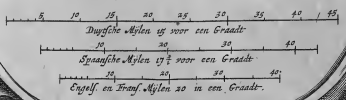 5 10 15 20 25 30 35 40 45
Duytsche Mylen 15 voor een Graadt
10 20 30 40
Spaansche Mylen 17½ voor een Graadt
10 20 30 40
Engels. en Frans. Mylen 20 in een Graadt.